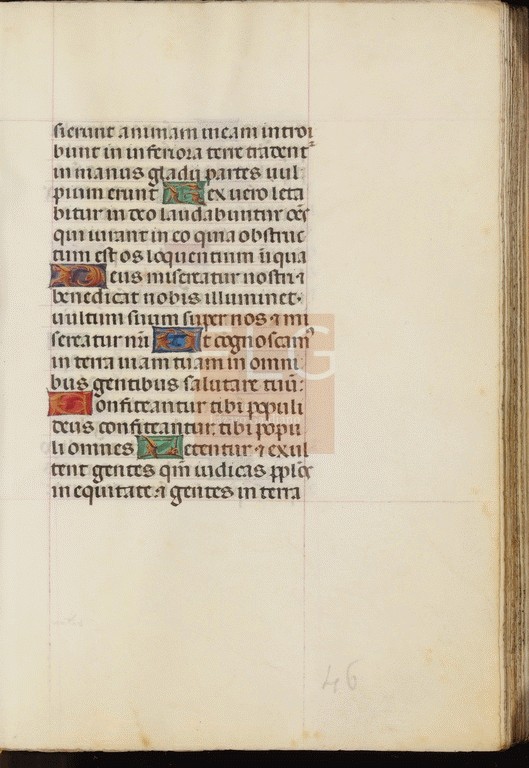 sierunt animam meam introi
bunt in inferiora terre tradent᷑
in manus gladij partes uul
pium erunt Rex uero leta
bitur in deo laudabuntur oēs
qui iurant in eo quia obstruc
tum est os loquentium iniqua
Deus misereatur nostri ⁊
benedicat nobis illuminet
uultum suum super nos ⁊ mi
sereatur nr̄i Et cognoscamꝰ
in terra uiam tuam in omni
bus gentibus salutare tuū:
Confiteantur tibi populi
deus confiteantur tibi popu
li omnes Letentur ⁊ exul
tent gentes qm̄ iudicas pp̄los
in equitate ⁊ gentes in terra
FLG
46